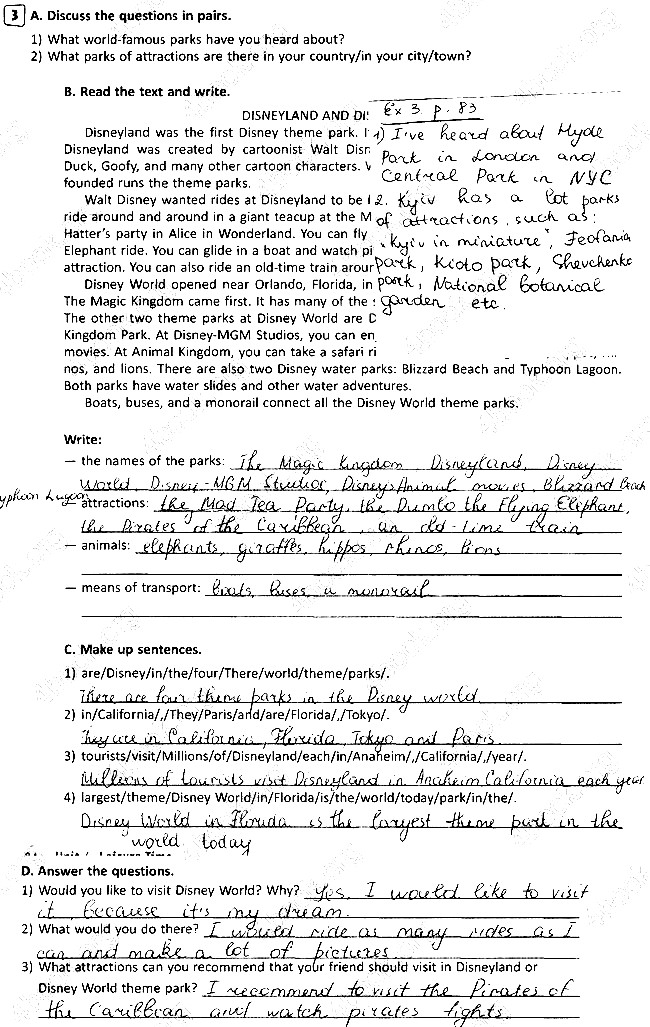 3 A. Discuss the questions in pairs.
1) What world-famous parks have you heard about?
2) What parks of attractions are there in your country/in your city/town?
B. Read the text and write.
DISNEYLAND AND DIS
Ex 3. p. 83
Disneyland was the first Disney theme park. I
1) I've heard about Hyde
Disneyland was created by cartoonist Walt Disn
Park in London and
Duck, Goofy, and many other cartoon characters. W
Central Park in NYC
founded runs the theme parks.
Walt Disney wanted rides at Disneyland to be l
2. Kyiv has a lot parks
ride around and around in a giant teacup at the M
of attractions, such as:
Hatter's party in Alice in Wonderland. You can fly
"Kyiv in miniature", Feofania
Elephant ride. You can glide in a boat and watch pi
park, Kioto park, Shevchenko
attraction. You can also ride an old-time train arour
park, National botanical
Disney World opened near Orlando, Florida, in
garden etc.
The Magic Kingdom came first. It has many of the
The other two theme parks at Disney World are D
Kingdom Park. At Disney-MGM Studios, you can en
movies. At Animal Kingdom, you can take a safari ri
nos, and lions. There are also two Disney water parks: Blizzard Beach and Typhoon Lagoon.
Both parks have water slides and other water adventures.
Boats, buses, and a monorail connect all the Disney World theme parks.
Write:
— the names of the parks: The Magic Kingdom Disneyland, Disney
World, Disney-MGM Studios, Disney Animal movies, Blizzard Beach
yphoon Lagoon
— attractions: the Mad Tea Party, the Dumbo the Flying Elephant,
the Pirates of the Caribbean, an old-time train
— animals: elephants, giraffes, hippos, rhinos, lions
— means of transport: boats, buses, a monorail
C. Make up sentences.
1) are/Disney/in/the/four/There/world/theme/parks/.
There are four theme parks in the Disney world.
2) in/California/,/They/Paris/and/are/Florida/,/Tokyo/.
They are in California, Florida, Tokyo and Paris.
3) tourists/visit/Millions/of/Disneyland/each/in/Anaheim/,/California/,/year/.
Millions of tourists visit Disneyland in Anaheim California each year
4) largest/theme/Disney World/in/Florida/is/the/world/today/park/in/the/.
Disney World in Florida is the largest theme park in the
world today
D. Answer the questions.
1) Would you like to visit Disney World? Why? Yes, I would like to visit
it, because it's my dream.
2) What would you do there? I would ride as many rides as I
can and make a lot of pictures
3) What attractions can you recommend that your friend should visit in Disneyland or
Disney World theme park? I recommend to visit the Pirates of
the Caribbean and watch pirates fights.